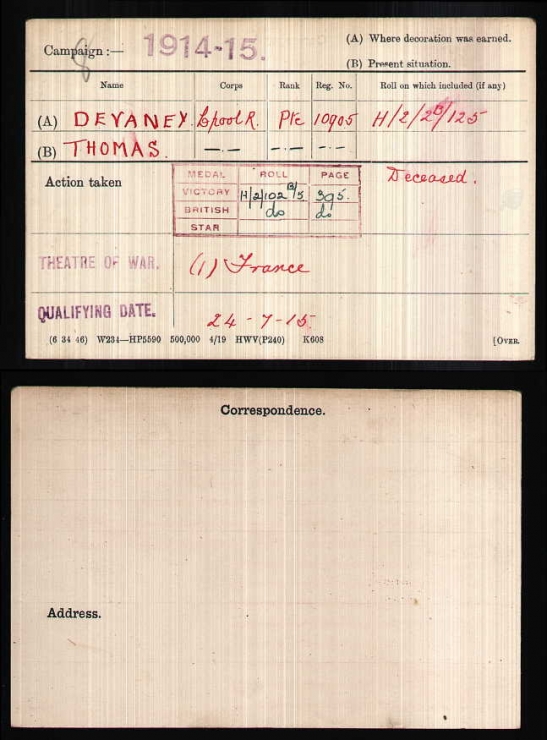 Campaign :— 1914-15.
(A) Where decoration was earned.
(B) Present situation.
Name Corps Rank Reg. No. Roll on which included (if any)
(A) DEVANEY. L'pool R. Pte 10905 H/2/2B/125
(B) THOMAS. — · — — · — — · —
Action taken
MEDAL ROLL PAGE
VICTORY H/2/102B/5 395.
BRITISH do do
STAR
Deceased.
THEATRE OF WAR. (1) France
QUALIFYING DATE. 24-7-15.
(6 34 46) W234—HP5590 500,000 4/19 HWV(P240) K608 [OVER.
Correspondence.
Address.